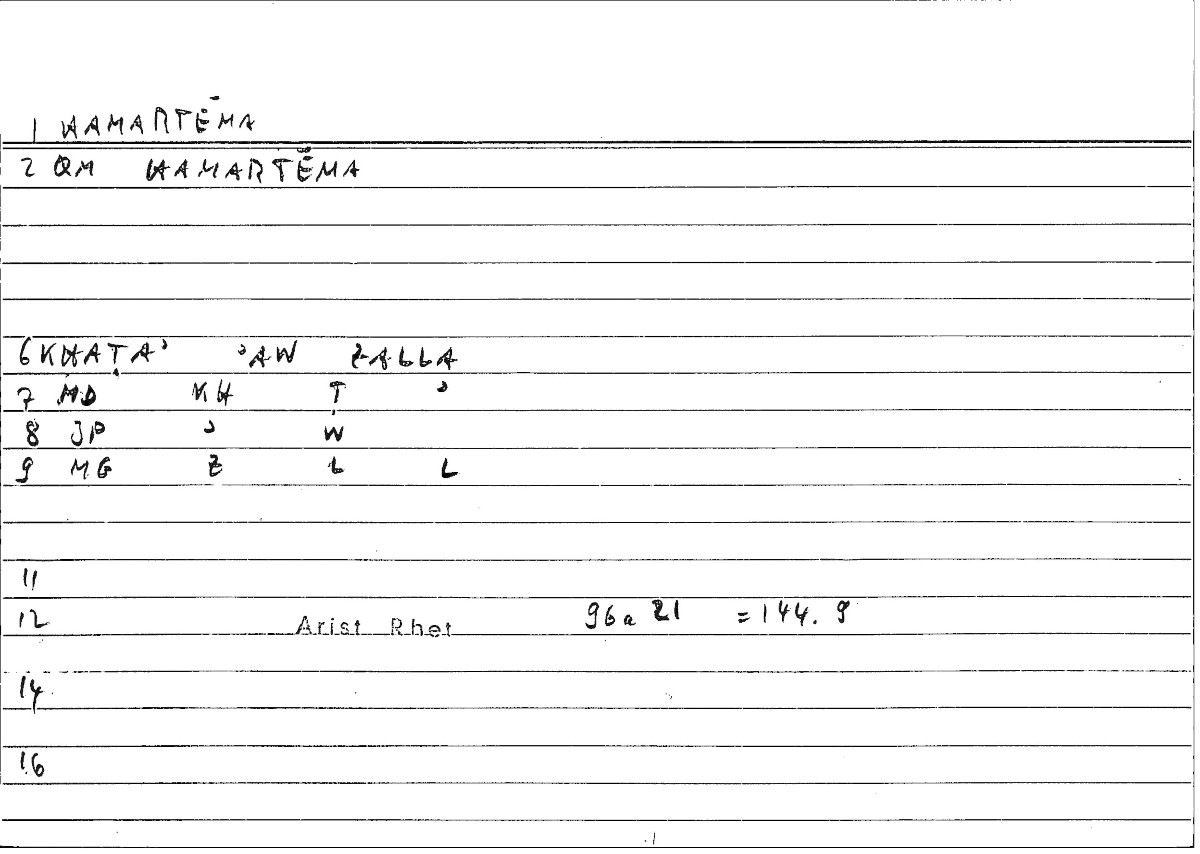 1 HAMARTĒMA
2 QM HAMARTĒMA
6 KHAṬAʾ ʾAW ZALLA
7 MD KH Ṭ ʾ
8 JP ʾ W
9 MG Z L L
11
12 Arist Rhet 96a 21 = 144. 9
14
16